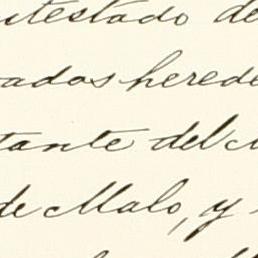 testado de
ados herede
tante del
de Malo, y